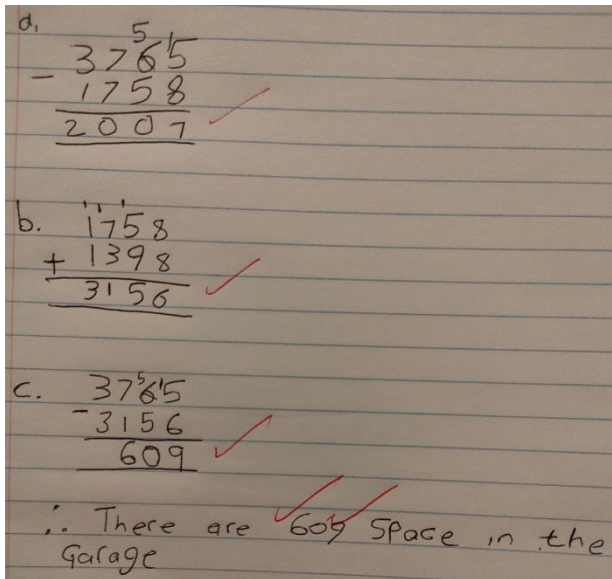 a,
5 1
3765
- 1758
2007
b.
1 1 1
1758
+ 1398
3156
c.
5 1
3765
- 3156
609
∴ There are 609 Space in the
Garage